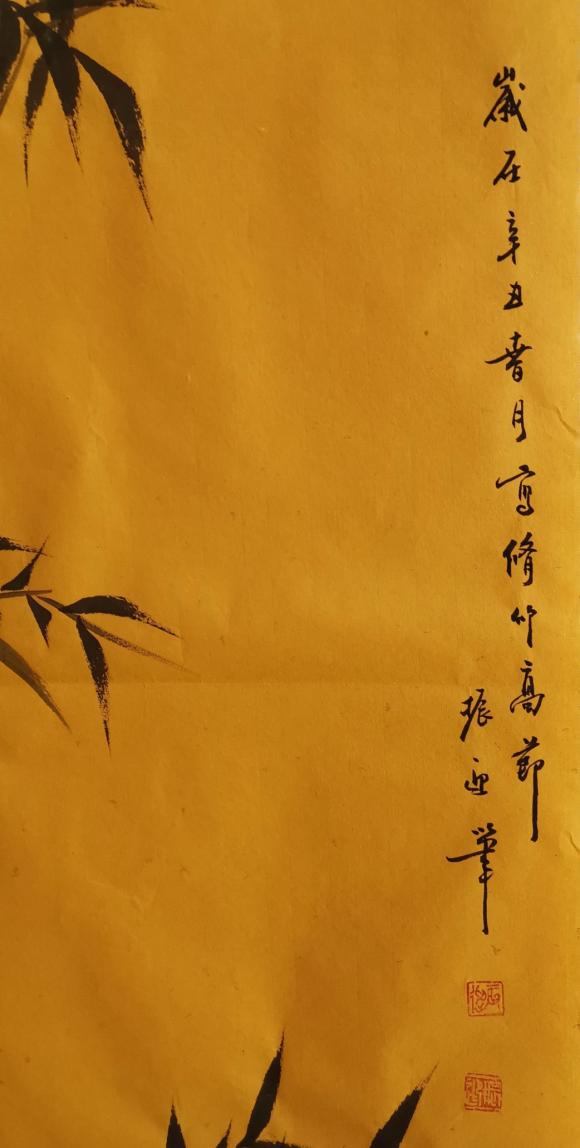 歲在辛丑春月寫脩竹高節
振筆